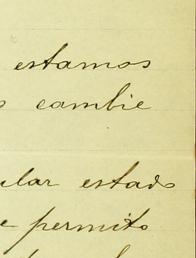 estamos
cambie
ular estado
permito